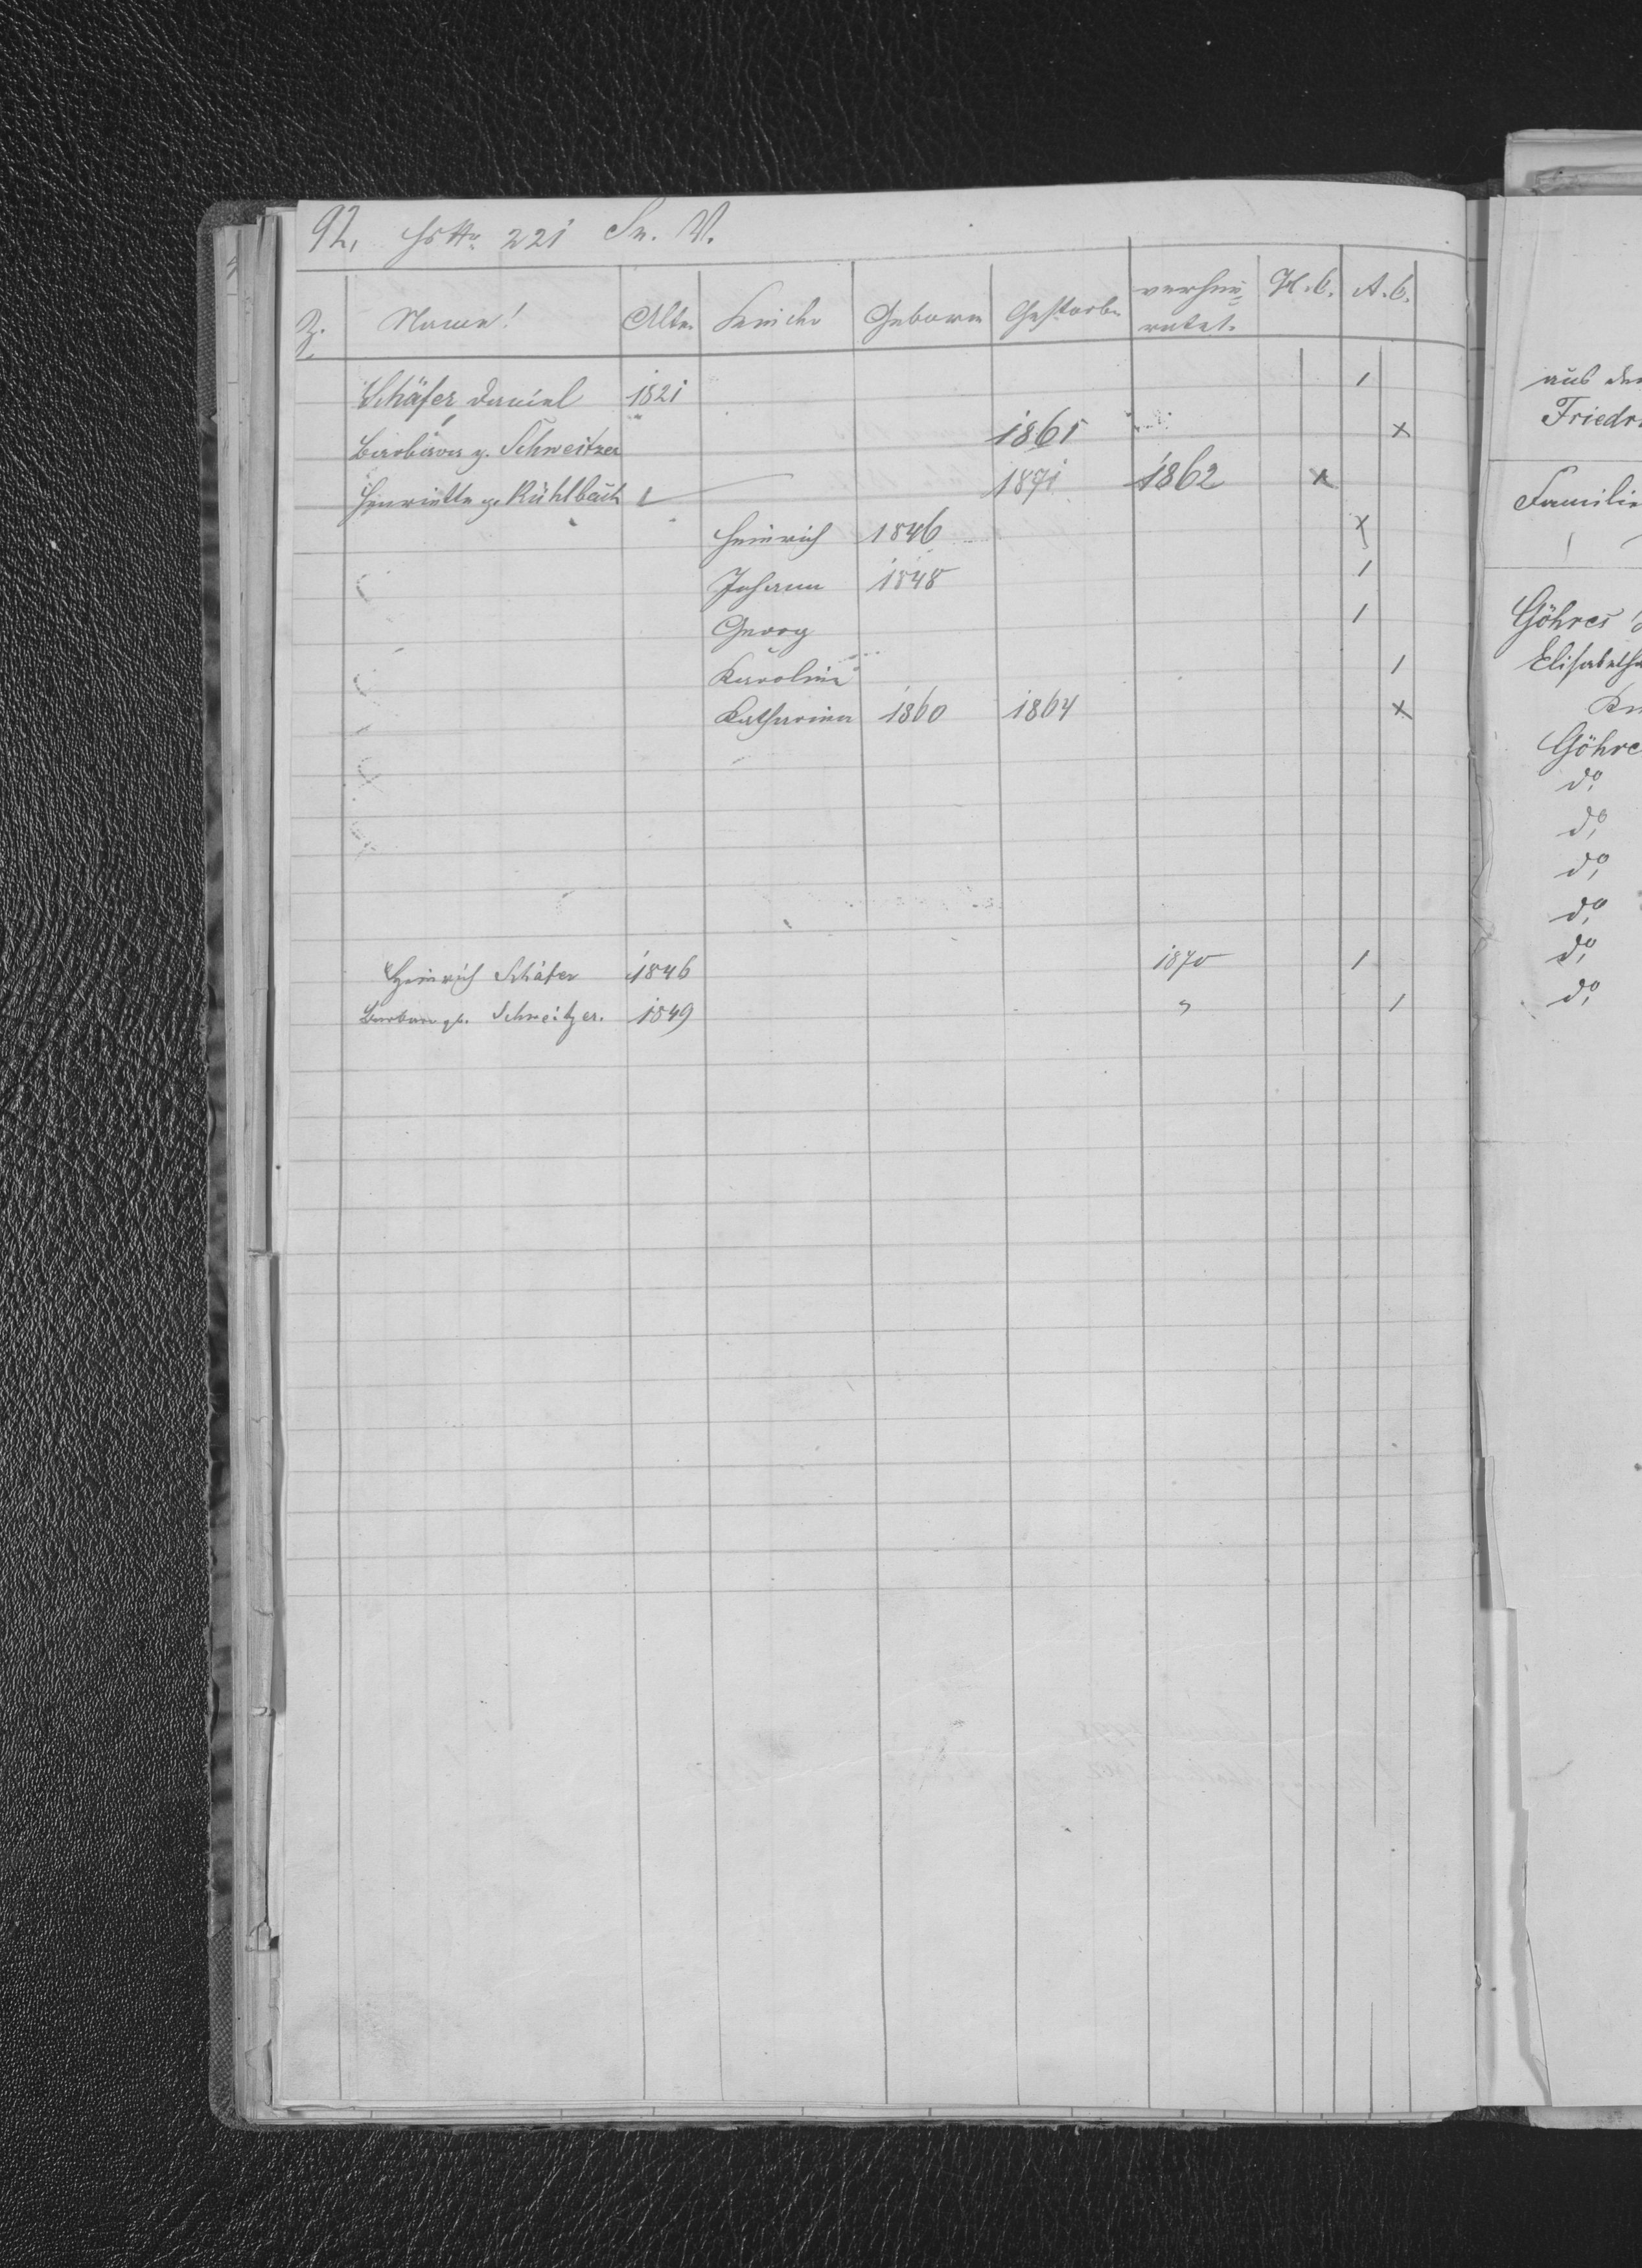 92, Hs No 221 Sn. V.
Z. Name! Alter Kinder Geboren Gestorben verhei= ratet. H.C. A.C.
Schäfer Daniel 1821 1
Barbara g. Schweitzer " 1865 x
Henriette g. Rühlbach 1871 1862 x
Heinrich 1846 x
Johann 1848 1
Georg 1
Karolina 1
Katharina 1860 1864 x
Heinrich Schäfer 1846 1870 1
Barbara gb. Schweitzer. 1849 " 1
aus der
Friedr
Familie
Göhres
Elisabetha
Göhre
do,
do,
do,
do,
do,
do,